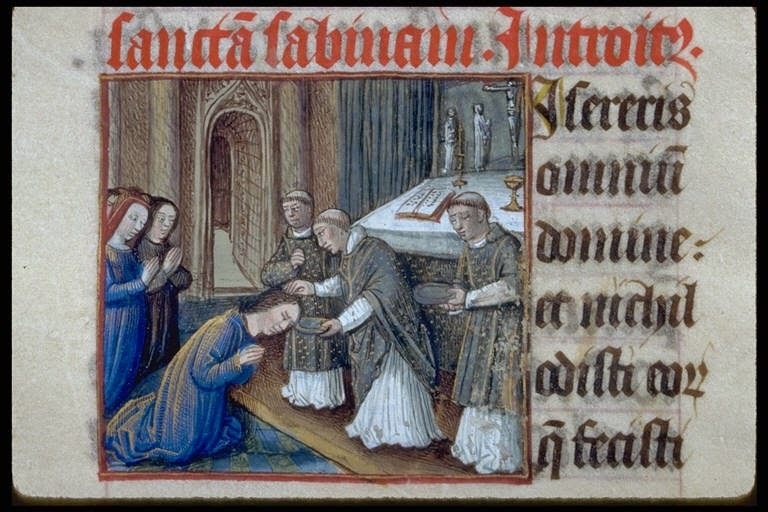 sanctā sabinam. Introitꝫ.
Misereris
omniū
domine:
et nichil
odisti eoꝝ
q̄ fecisti